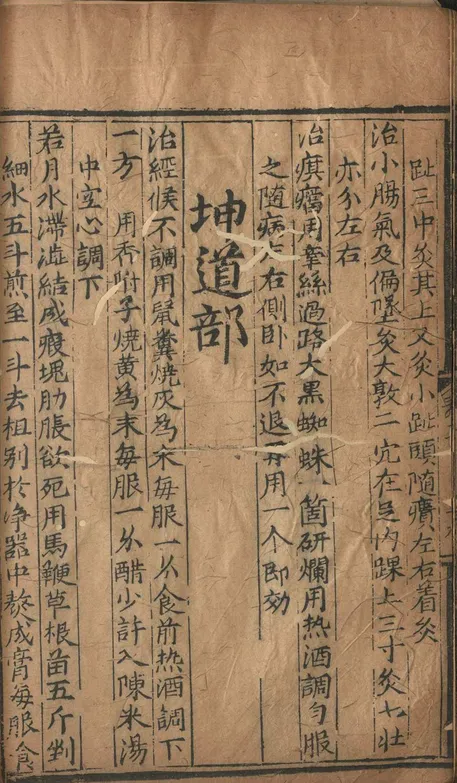 趾三中灸其上又灸小趾頭随㿗左右着灸
治小腸氣及偏墜灸大敦二穴在足内踝上三寸灸七壯
亦分左右
治㿗疝用牽絲過路大黒蜘蛛一箇研爛用热酒調匀服
之随病左右側卧如不退再用一个即効
坤道部
治經候不調用䑕糞燒灰為末每服一分食前热酒調下
一方　用香附子燒黄為末每服一分醋少許入陳米湯
中空心調下
若月水滯澁結成瘕塊肋脹欲死用馬鞭草根苗五斤剉
細水五斗煎至一斗去柤别於净器中熬成膏每服食